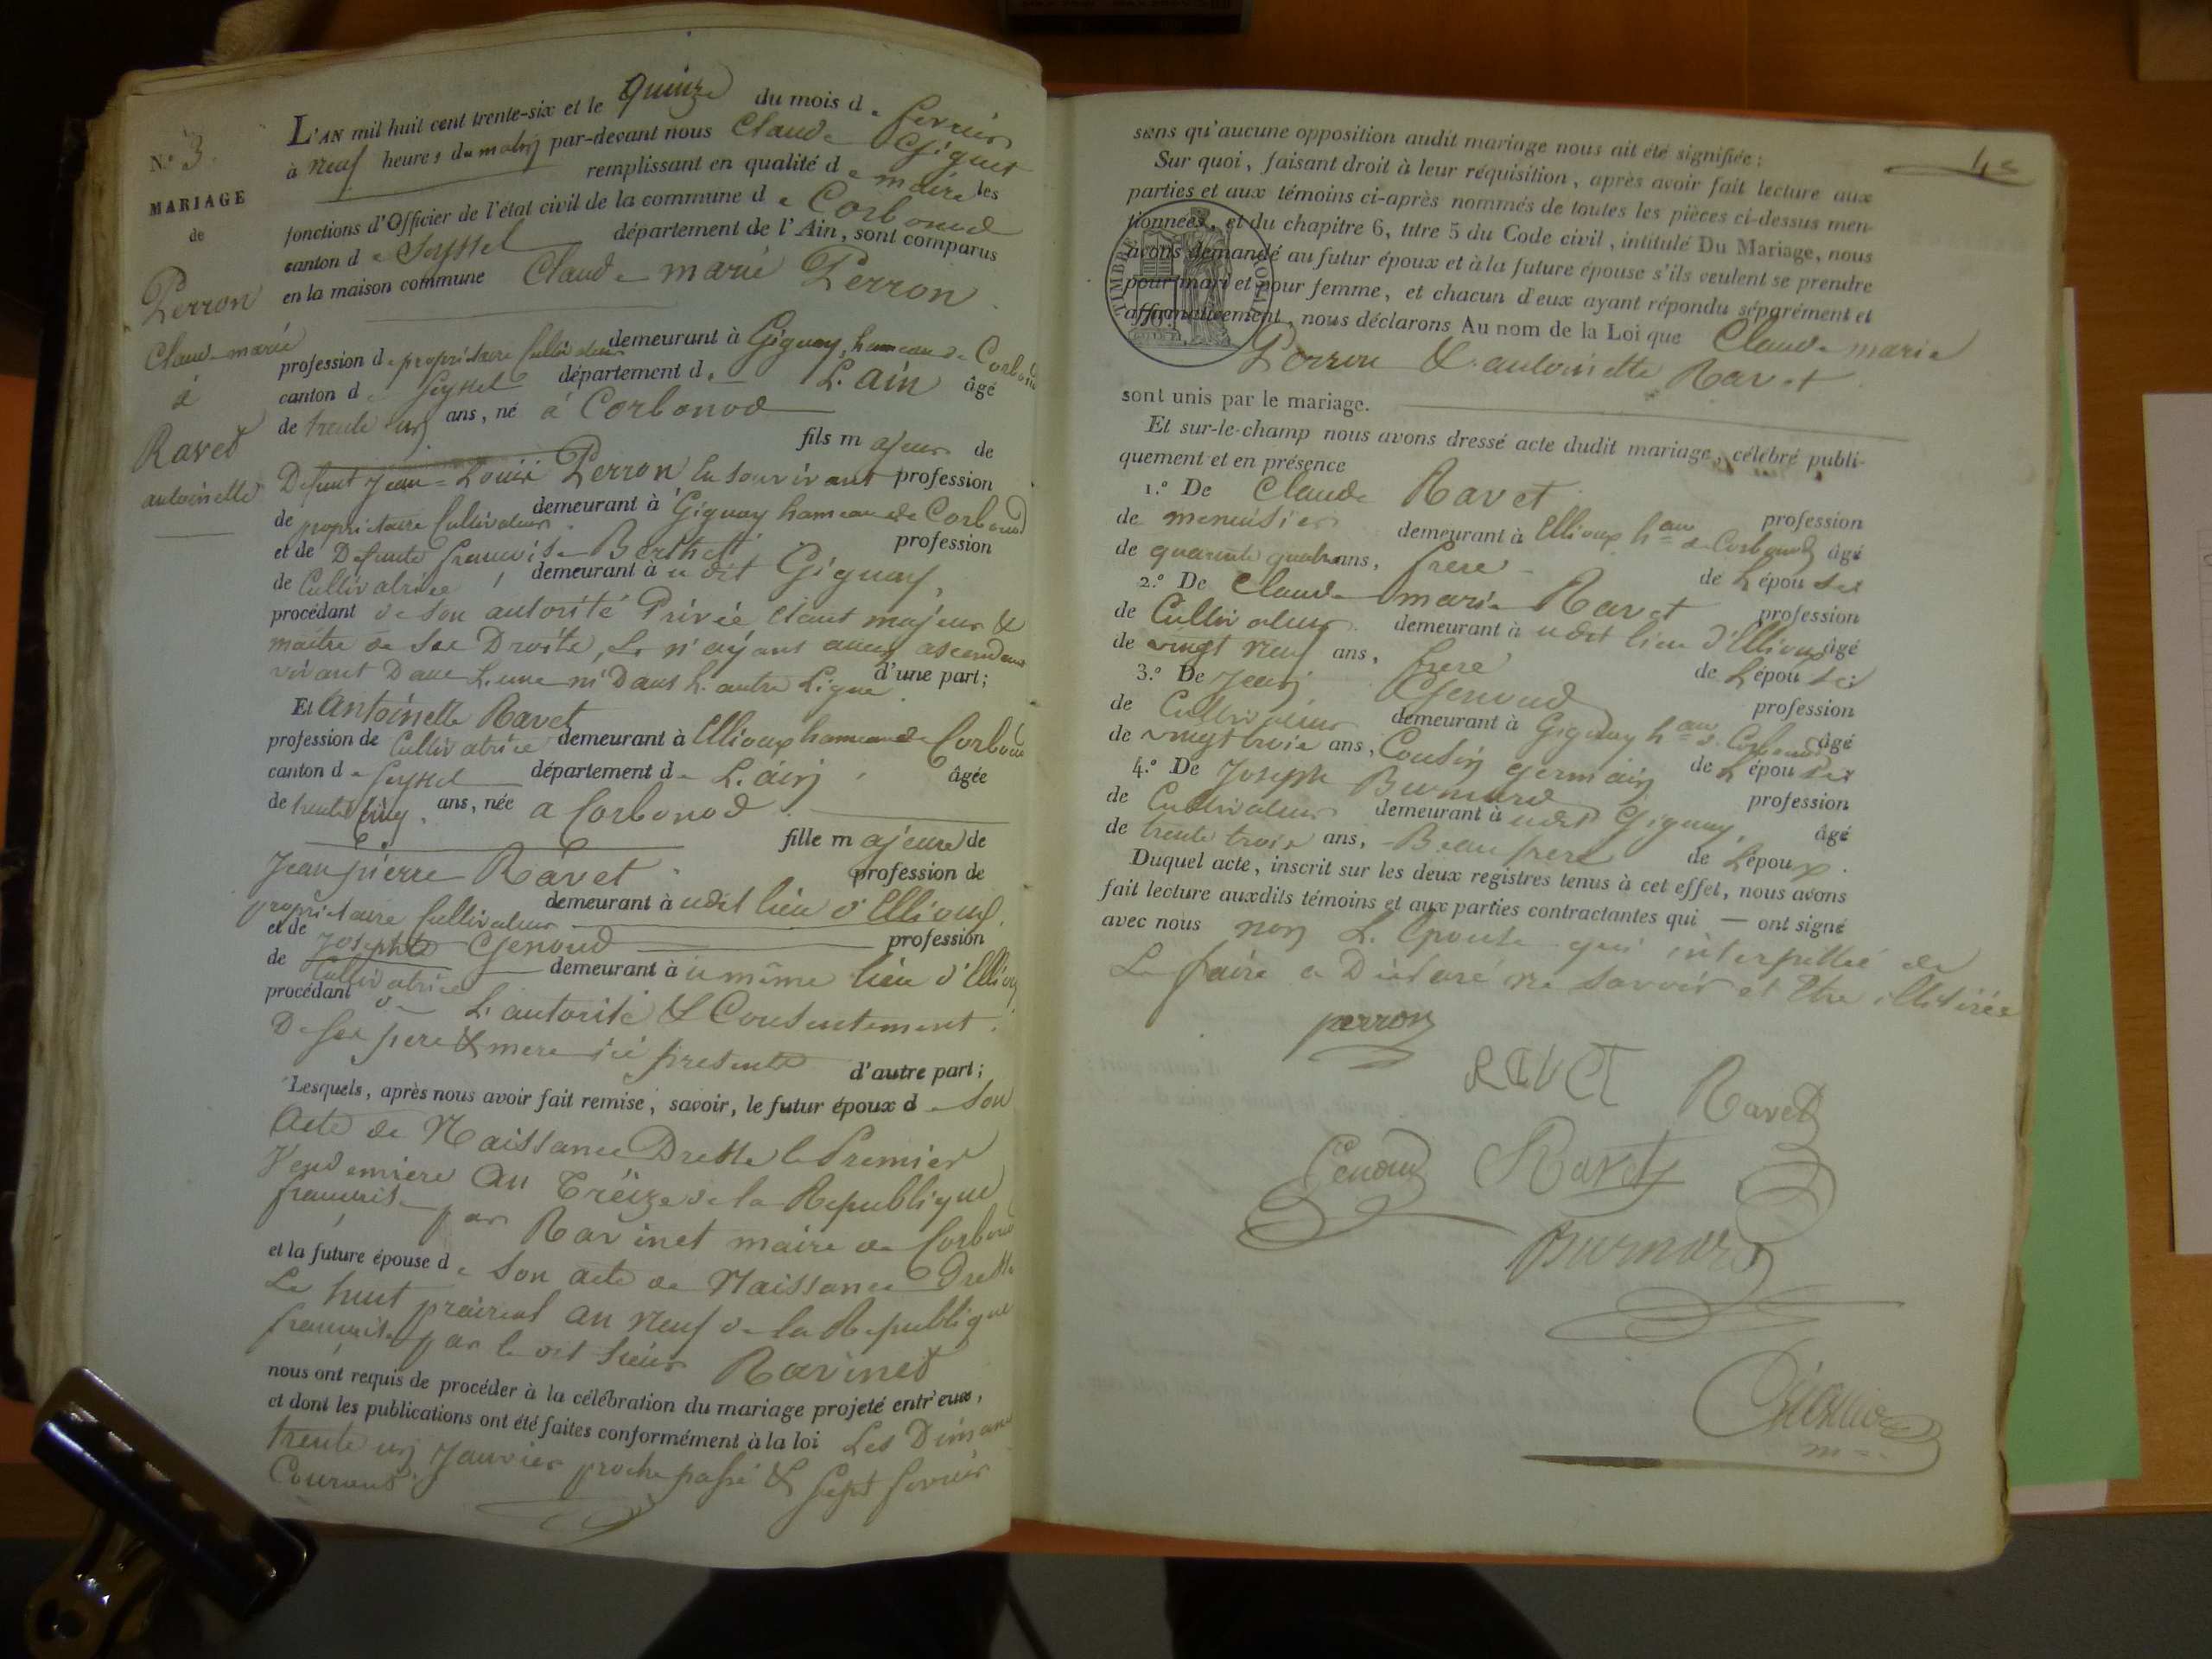 N.° 3.
MARIAGE
de
Perron
Claude-marie
à
Ravet
antoinette
L'AN mil huit cent trente-six et le Quinze du mois de fevrier
à neuf heures du matin par-devant nous Claude
remplissant en qualité de maire les
fonctions d'Officier de l'état civil de la commune de Corbonod
canton de Seyssel département de l'Ain, sont comparus
en la maison commune Claude marie Perron
profession de propriétaire Cultivateur demeurant à Gignay, hameau de Corbonod
canton de Seyssel département de L'ain âgé
de trente un ans, né à Corbonod
fils majeur de
Defunt Jean-Louis Perron En son vivant profession
de propriétaire Cultivateur demeurant à Gignay hameau de Corbonod
et de Defunte françoise Berthet profession
de Cultivatrice demeurant à u dit Gignay,
procédant de Son autorité Privée Etant majeur &
maitre de Ses Droits, & n'ayant aucun ascendant
vivant Dans L'une ni Dans L'autre Ligne d'une part;
Et Antoinette Ravet
profession de Cultivatrice demeurant à Ellioux hameau de Corbonod
canton de Seyssel département de L'ain âgée
de trente Cinq ans, née a Corbonod
fille majeure de
Jean pierre Ravet profession de
propriétaire Cultivateur demeurant à udit lieu d'Ellioux
et de Josephte Genoud profession
de Cultivatrice demeurant à u même lieu d'Ellioux
procédant de L'autorité & Consentement
De Ses pere & mere ici presents d'autre part;
Lesquels, après nous avoir fait remise, savoir, le futur époux de Son
Acte de Naissance Dressé le Premier
Vendemiere An Treize de la Republique
française par Ravinet maire de Corbonod
et la future épouse de Son acte de Naissance Dressé
Le huit prairial an Neuf de la Republique
française par le dit Sieur Ravinet
nous ont requis de procéder à la célébration du mariage projeté entr'eux,
et dont les publications ont été faites conformément à la loi Les Dimanches
trente un Janvier proche passé & Sept fevrier
Courant
48
sans qu'aucune opposition audit mariage nous ait été signifiée;
Sur quoi, faisant droit à leur réquisition, après avoir fait lecture aux
parties et aux témoins ci-après nommés de toutes les pièces ci-dessus men-
tionnées, et du chapitre 6, titre 5 du Code civil, intitulé Du Mariage, nous
avons demandé au futur époux et à la future épouse s'ils veulent se prendre
pour mari et pour femme, et chacun d'eux ayant répondu séparément et
affirmativement, nous déclarons Au nom de la Loi que Claude marie
Perron & antoinette Ravet
sont unis par le mariage.
Et sur-le-champ nous avons dressé acte dudit mariage, célébré publi-
quement et en présence
1.° De Claude Ravet profession
de menuisier demeurant à Ellioux hau de Corbonod âgé
de quarante quatre ans, frere de L'épouse
2.° De Claude marie Ravet profession
de Cultivateur demeurant à udit lieu d'Ellioux âgé
de vingt neuf ans, frere de L'épouse
3.° De Jean Genoud profession
de Cultivateur demeurant à Gignay hau de Corbonod âgé
de vingt trois ans, Cousin germain de L'épouse
4.° De Joseph Burnard profession
de Cultivateur demeurant à udit Gignay, âgé
de trente trois ans, Beau frere de L'époux.
Duquel acte, inscrit sur les deux registres tenus à cet effet, nous avons
fait lecture auxdits témoins et aux parties contractantes qui — ont signé
avec nous non L'Epouse qui interpellée de
Le faire a Déclaré ne savoir et Etre illitirée
perron
RAVET Ravet
Genoud Ravet
Burnard